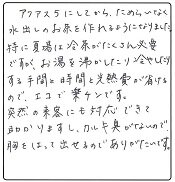 アクアス5にしてから、ためらいなく
水出しのお茶を作れるようになりました。
特に夏場は冷茶がたくさん必要
ですが、お湯を沸かしたり冷やしたり
する手間と時間と光熱費が省ける
ので、エコで楽チンです。
突然の来客にも対応できて
助かりますし、カルキ臭がないので
胸をはって出せるのでありがたいです。